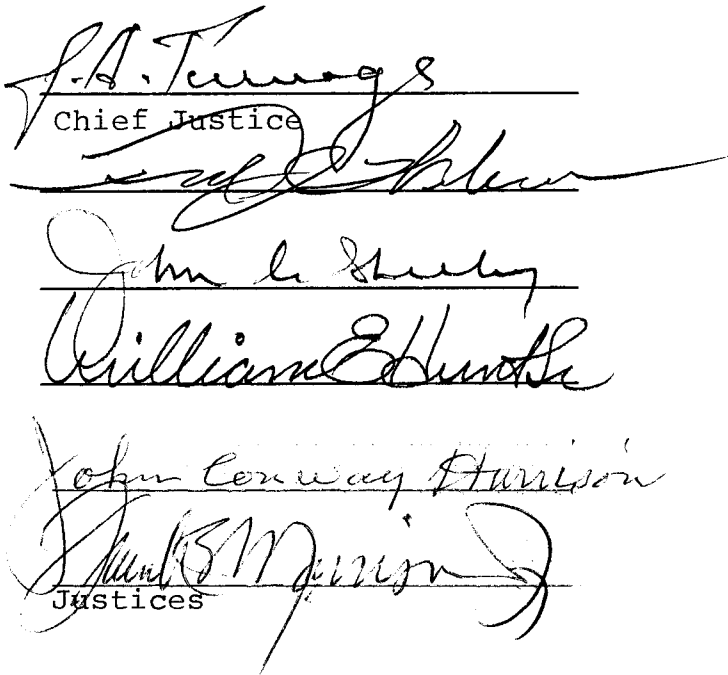 J.A. Turnage
Chief Justice
John C. Sheehy
William E. Hunt Sr
John Conway Harrison
Frank B. Morrison Jr
Justices